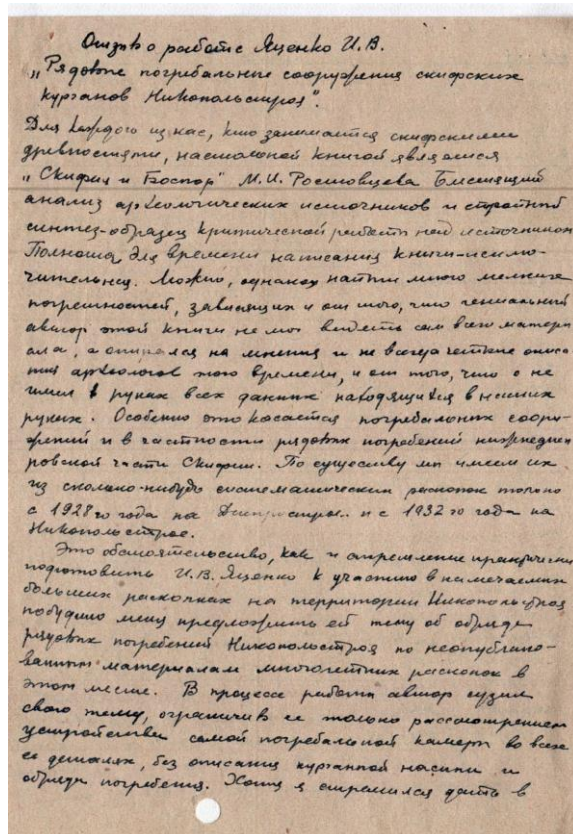 Отзыв о работе Яценко И.В.
„Рядовые погребальные сооружения скифских
курганов Никопольстроя".
Для каждого из нас, кто занимается скифскими
древностями, настольной книгой является
„Скифия и Боспор" М.И. Ростовцева Блестящий
анализ археологических источников и стройный
синтез-образец критической работы над источником
Полнота для времени написания книги-исклю-
чительная. Можно, однако найти много мелких
погрешностей, зависящих и от того, что гениальный
автор этой книги не мог видеть сам всего матери
ала, а опирался на мнения и не всегда четкие описа
ния археологов того времени, и от того, что он не
имел в руках всех данных находящихся в наших
руках. Особенно это касается погребальных соору-
жений и в частности рядовых погребений нижнеднеп
ровской части Скифии. По существу мы имеем их
из сколько-нибудь систематических раскопок только
с 1928 го года на Днепрострое.. и с 1932 го года на
Никопольстрое.
Это обстоятельство, как и стремление практически
подготовить И.В. Яценко к участию в намечаемых
больших раскопках на территории Никопольстроя
побудило меня предложить ей тему об обряде
рядовых погребений Никопольстроя по неопублико-
ванным материалам многолетних раскопок в
этом месте. В процессе работы автор сузил
свою тему, ограничив ее только рассмотрением
устройства самой погребальной камеры во всех
ее деталях, без описания курганной насыпи и
обряда погребения. Хотя я стремился дать в